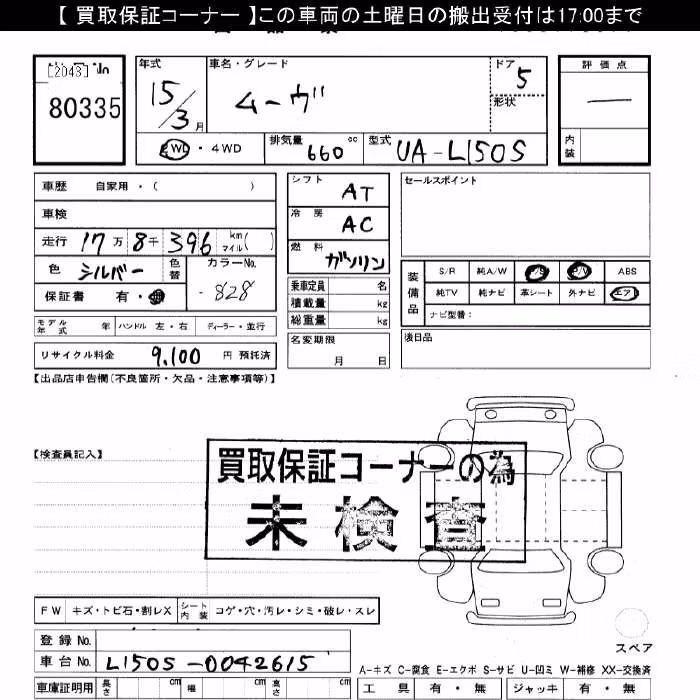 【 買取保証コーナー 】この車両の土曜日の搬出受付は17:00まで
[2043]
80335
年式 15/3月
車名・グレード ムーヴ
ドア 5
形状
評価点 —
内装
2WD ・ 4WD
排気量 660 cc
型式 UA-L150S
車歴 自家用・( )
車検
走行 17万 8千 396 km マイル( )
色 シルバー 色替 カラーNo. -828
保証書 有・無
モデル年式 年 ハンドル 左・右 ディーラー・並行
リサイクル料金 9,100 円 預託済
シフト AT
冷房 AC
燃料 ガソリン
乗車定員 名
積載量 kg
総重量 kg
名変期限 月 日
セールスポイント
装備品 S/R 純A/W P/S P/W ABS
純TV 純ナビ 革シート 外ナビ エアB
ナビ型番:
後日品
【出品店申告欄(不良箇所・欠品・注意事項等)】
【検査員記入】
買取保証コーナーの為
未検査
FW キズ・トビ石・割レX シート内装 コゲ・穴・汚レ・シミ・破レ・スレ
スペア
登録 No.
車台 No. L150S-0042615
A-キズ C-腐食 E-エクボ S-サビ U-凹ミ W-補修 XX-交換済
車庫証明用 長さ cm 幅 cm 高さ cm 工具 有・無 ジャッキ 有・無